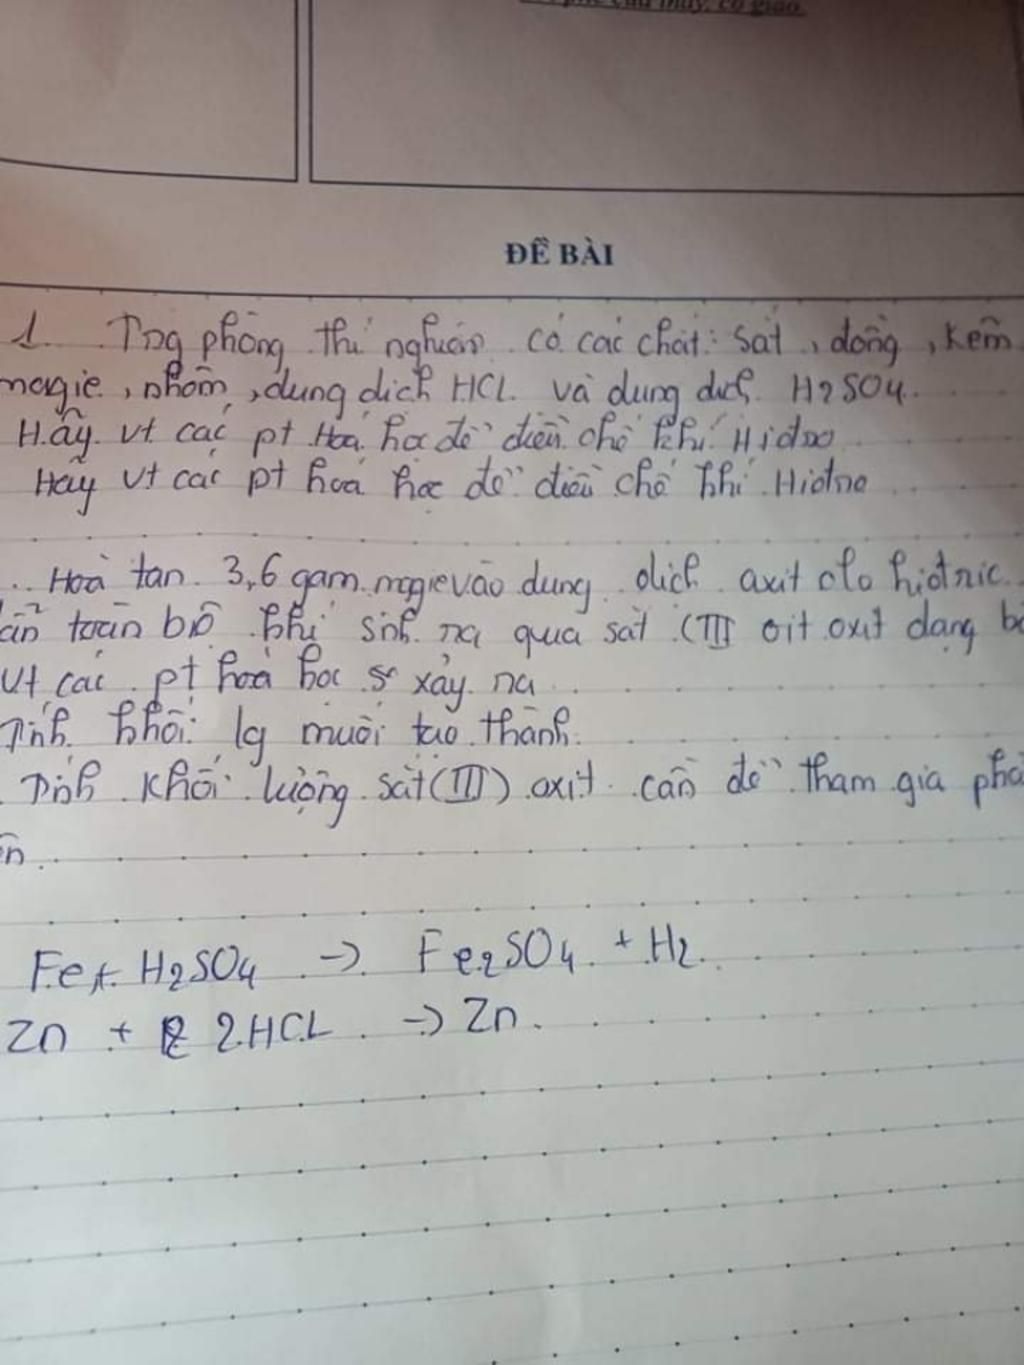 thầy, cô giáo
ĐỀ BÀI
1. Tng phòng thí nghiệm có các chất: sắt, đồng, kẽm
magie, nhôm, dung dịch HCL và dung dịch H2SO4.
Hãy vt các pt Hoá học để điều chế khí Hiđro
Hãy vt các pt hoá học để điều chế khí Hiđro
Hoà tan 3,6 gam magie vào dung dịch axit clo hiđric.
ẫn toàn bộ khí sinh ra qua sắt (III) oxit dạng bộ
vt các pt hoá học xảy ra
Tính khối lg muối tạo thành.
Tính khối lượng sắt (III) oxit cần để tham gia phả
Fe + H2SO4 -> Fe2SO4 + H2.
Zn + 2HCL -> Zn.